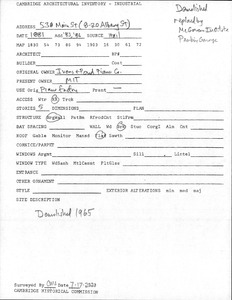 CAMBRIDGE ARCHITECTURAL INVENTORY - INDUSTRIAL
Demolished
replaced by
McGovern Institute
Parking Garage
ADDRESS 538 Main St (8-20 Albany St)
DATE 1881
SOURCE
MAP 1830 54 73 86 94 1903 16 30 61 72
ARCHITECT BP#
BUILDER Cont
ORIGINAL OWNER Ivers + Pond Piano Co.
PRESENT OWNER MIT
USE Orig Piano Factory Front
ACCESS Wtr RR Trnk
STORIES 5 DIMENSIONS PLAN
STRUCTURE
BAY SPACING WALL Wd Brk Stuc Corgl Alm Cnt
ROOF Gable Monitor Mansd Flat Sawth
CORNICE/PARPET
WINDOWS Argmt Sill Lintel
WINDOW TYPE WdSash MtlCsmnt FltGlss
ENTRANCE
OTHER ORNAMENT
STYLE EXTERIOR ALTERATIONS min mod maj
SITE DESCRIPTION
Demolished 1965
Surveyed By Date 7-17-2003
CAMBRIDGE HISTORICAL COMMISSION